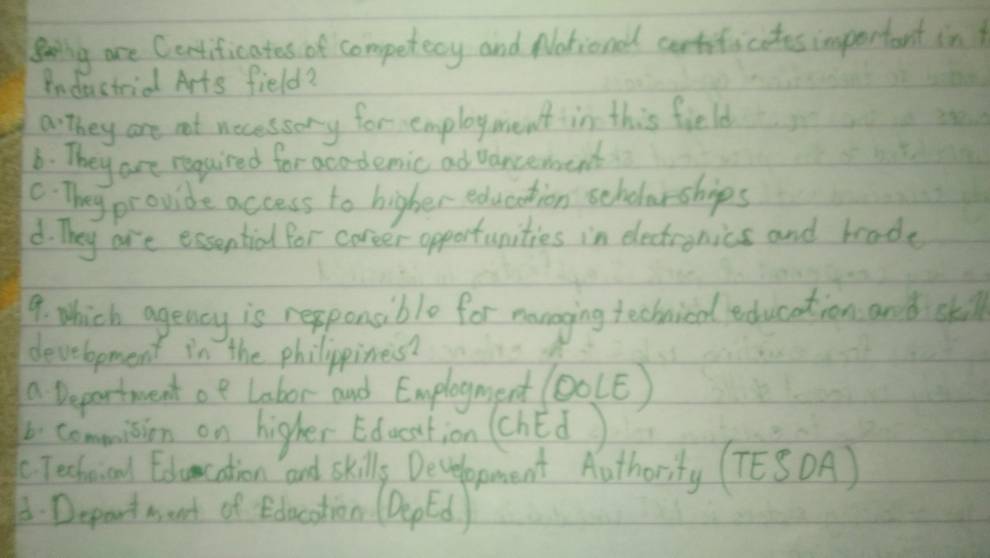 are Certificates of competecy and National certificates important in t
Industrial Arts field?
a. They are not necessary for employment in this field
b. They are required for academic advancement
c. They provide access to higher education scholarships
d. They are essential for career opportunities in electronics and trade
9. Which agency is responsible for managing technical education and skill
development in the philippines?
a. Department of Labor and Employment (DOLE)
b. Commision on higher Education (ChEd)
c. Technical Education and skills Development Authority (TESDA)
d. Department of Education (DepEd)